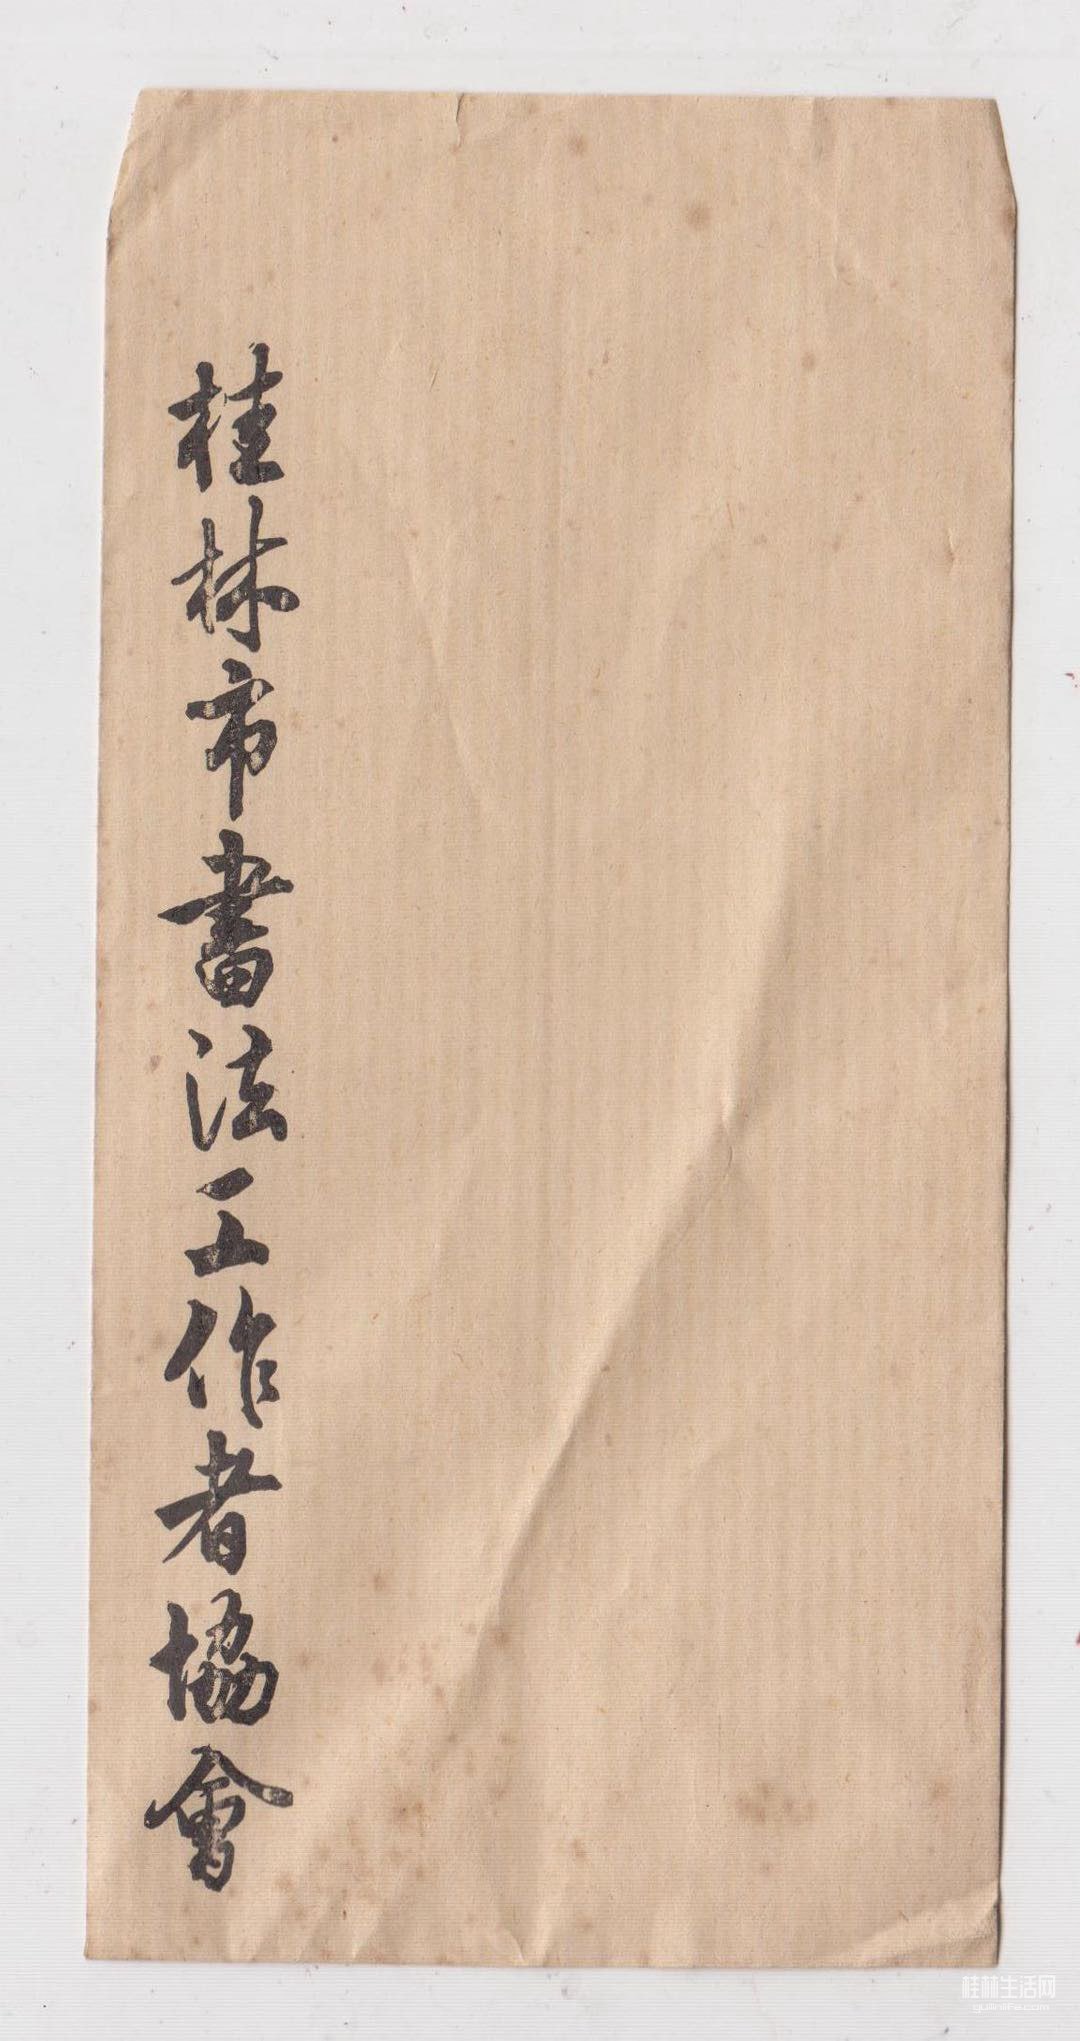 桂林市書法工作者協會
桂林生活网
guilinlife.com